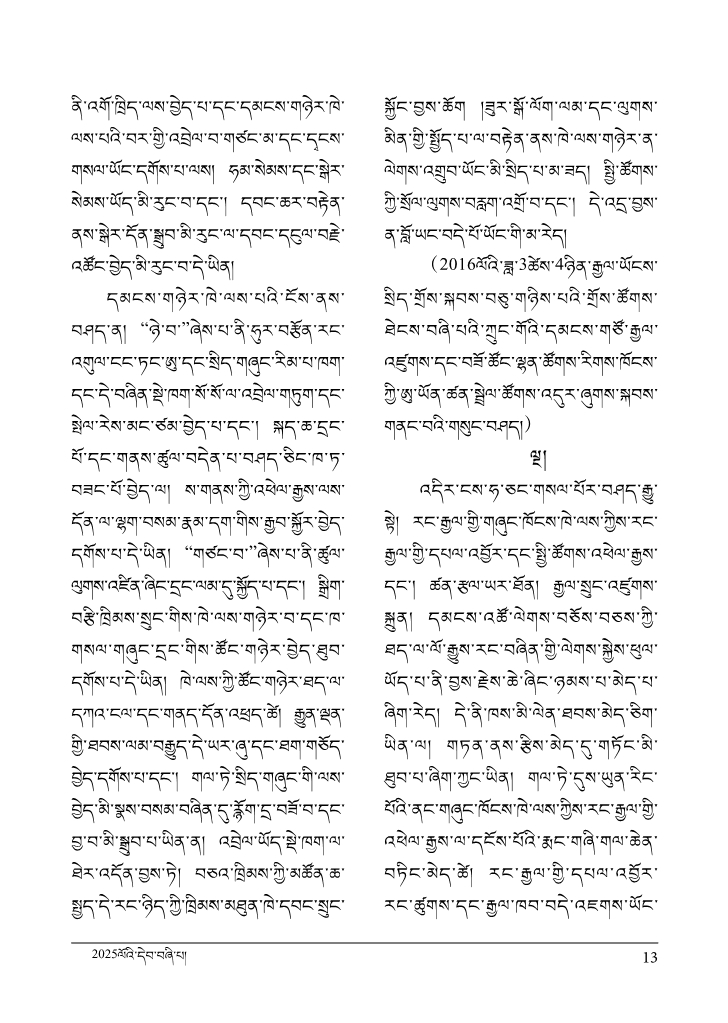 ནི་འགོ་ཁྲིད་ལས་བྱེད་པ་དང་དམངས་གཉེར་ཁེ་
ལས་པའི་བར་གྱི་འབྲེལ་བ་གཙང་མ་དང་དྭངས་
གསལ་ཡོང་དགོས་པ་ལས། ཧམ་སེམས་དང་སྒེར་
སེམས་ཡོད་མི་རུང་བ་དང༌། དབང་ཆར་བརྟེན་
ནས་སྒེར་དོན་སྒྲུབ་མི་རུང་ལ་དབང་དངུལ་བརྗེ་
འཚོང་བྱེད་མི་རུང་བ་དེ་ཡིན།
དམངས་གཉེར་ཁེ་ལས་པའི་ངོས་ནས་
བཤད་ན། “ཉེ་བ་”ཞེས་པ་ནི་ཧུར་བརྩོན་རང་
འགུལ་ངང་ཏང་ཨུ་དང་སྲིད་གཞུང་རིམ་པ་ཁག་
དང་དེ་བཞིན་སྡེ་ཁག་སོ་སོ་ལ་འབྲེལ་གཏུག་དང་
སྤེལ་རེས་མང་ཙམ་བྱེད་པ་དང༌། སྐད་ཆ་དྲང་
པོ་དང་གནས་ཚུལ་བདེན་པ་བཤད་ཅིང་ཁ་ཏ་
བཟང་པོ་བྱེད་ལ། ས་གནས་ཀྱི་འཕེལ་རྒྱས་ལས་
དོན་ལ་ལྷག་བསམ་རྣམ་དག་གིས་རྒྱབ་སྐྱོར་བྱེད་
དགོས་པ་དེ་ཡིན། “གཙང་བ་”ཞེས་པ་ནི་ཚུལ་
ལུགས་འཛིན་ཞིང་དྲང་ལམ་དུ་སྐྱོད་པ་དང༌། སྒྲིག་
བརྩི་ཁྲིམས་སྲུང་གིས་ཁེ་ལས་གཉེར་བ་དང་ཁ་
གསལ་གཞུང་དྲང་གིས་ཚོང་གཉེར་བྱེད་ཐུབ་
དགོས་པ་དེ་ཡིན། ཁེ་ལས་ཀྱི་ཚོང་གཉེར་ཐད་ལ་
དཀའ་ངལ་དང་གནད་དོན་འཕྲད་ཚེ། རྒྱུན་ལྡན་
གྱི་ཐབས་ལམ་བརྒྱུད་དེ་ཡར་ཞུ་དང་ཐག་གཅོད་
བྱེད་དགོས་པ་དང༌། གལ་ཏེ་སྲིད་གཞུང་གི་ལས་
བྱེད་མི་སྣས་བསམ་བཞིན་དུ་རྙོག་དྲ་བཟོ་བ་དང་
བྱ་བ་མི་སྒྲུབ་པ་ཡིན་ན། འབྲེལ་ཡོད་སྡེ་ཁག་ལ་
ཐེར་འདོན་བྱས་ཏེ། བཅའ་ཁྲིམས་ཀྱི་མཚོན་ཆ་
སྤྱད་དེ་རང་ཉིད་ཀྱི་ཁྲིམས་མཐུན་ཁེ་དབང་སྲུང་
སྐྱོང་བྱས་ཆོག །ཟུར་སྒོ་ལོག་ལམ་དང་ལུགས་
མིན་གྱི་སྤྱོད་པ་ལ་བརྟེན་ནས་ཁེ་ལས་གཉེར་ན་
ལེགས་འགྲུབ་ཡོང་མི་སྲིད་པ་མ་ཟད། སྤྱི་ཚོགས་
ཀྱི་སྲོལ་ལུགས་བརླག་འགྲོ་བ་དང༌། དེ་འདྲ་བྱས་
ན་བློ་ཡང་བདེ་པོ་ཡོང་གི་མ་རེད།
（2016ལོའི་ཟླ་3ཚེས་4ཉིན་རྒྱལ་ཡོངས་
སྲིད་གྲོས་སྐབས་བཅུ་གཉིས་པའི་གྲོས་ཚོགས་
ཐེངས་བཞི་པའི་ཀྲུང་གོའི་དམངས་གཙོ་རྒྱལ་
འཛུགས་དང་བཟོ་ཚོང་ལྷན་ཚོགས་རིགས་ཁོངས་
ཀྱི་ཨུ་ཡོན་ཚན་སྦྲེལ་ཚོགས་འདུར་ཞུགས་སྐབས་
གནང་བའི་གསུང་བཤད།）
༥།
འདིར་ངས་ཧ་ཅང་གསལ་པོར་བཤད་རྒྱུ་
སྟེ། རང་རྒྱལ་གྱི་གཞུང་ཁོངས་ཁེ་ལས་ཀྱིས་རང་
རྒྱལ་གྱི་དཔལ་འབྱོར་དང་སྤྱི་ཚོགས་འཕེལ་རྒྱས་
དང༌། ཚན་རྩལ་ཡར་ཐོན། རྒྱལ་སྲུང་འཛུགས་
སྐྲུན། དམངས་འཚོ་ལེགས་བཅོས་བཅས་ཀྱི་
ཐད་ལ་ལོ་རྒྱུས་རང་བཞིན་གྱི་ལེགས་སྐྱེས་ཕུལ་
ཡོད་པ་ནི་བྱས་རྗེས་ཆེ་ཞིང་ཉམས་པ་མེད་པ་
ཞིག་རེད། དེ་ནི་ཁས་མི་ལེན་ཐབས་མེད་ཅིག་
ཡིན་ལ། གཏན་ནས་རྩིས་མེད་དུ་གཏོང་མི་
ཐུབ་པ་ཞིག་ཀྱང་ཡིན། གལ་ཏེ་དུས་ཡུན་རིང་
པོའི་ནང་གཞུང་ཁོངས་ཁེ་ལས་ཀྱིས་རང་རྒྱལ་གྱི་
འཕེལ་རྒྱས་ལ་དངོས་པོའི་རྨང་གཞི་གལ་ཆེན་
བཏིང་མེད་ཚེ། རང་རྒྱལ་གྱི་དཔལ་འབྱོར་
རང་ཚུགས་དང་རྒྱལ་ཁབ་བདེ་འཇགས་ཡོང་
2025ལོའི་དེབ་བཞི་པ།
13